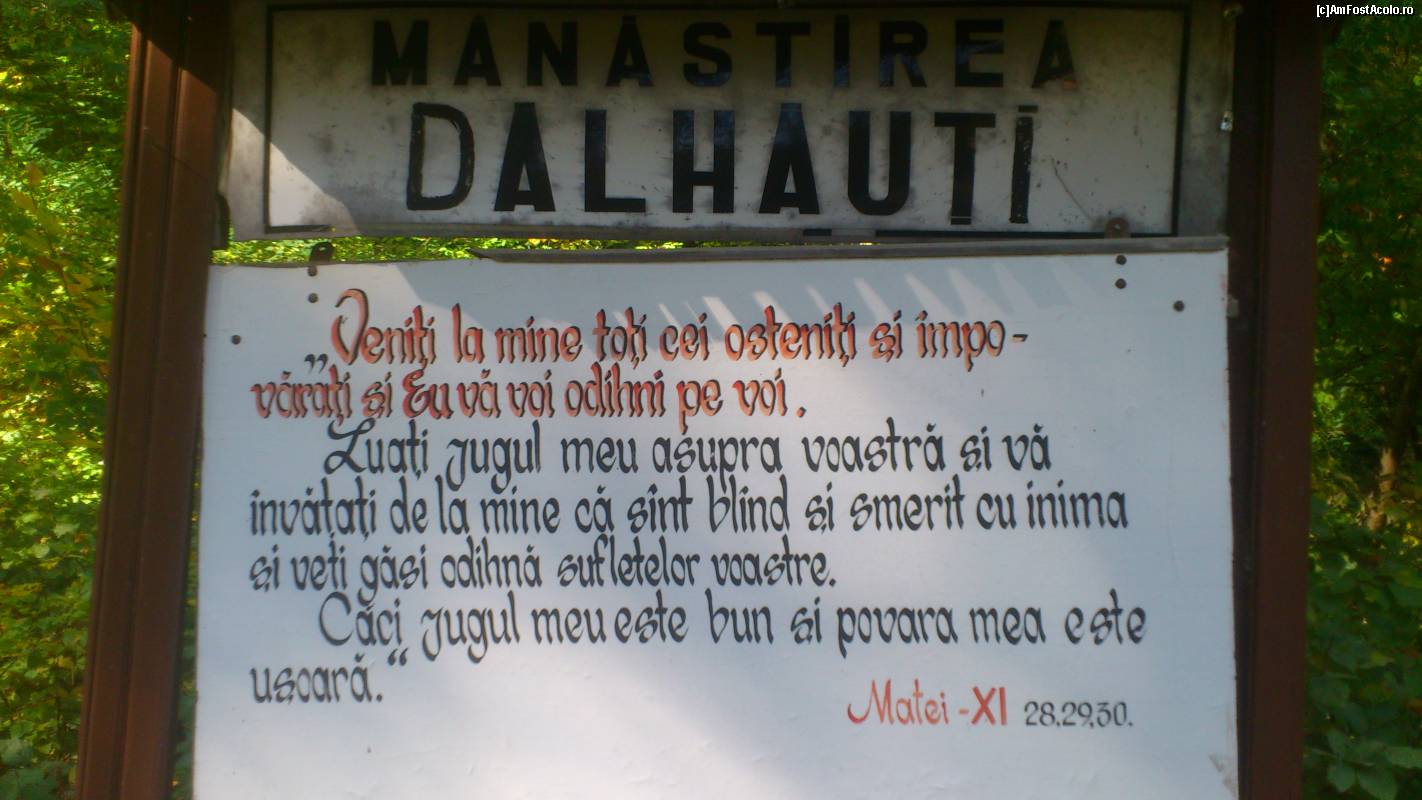 [c]AmFostAcolo.ro
MĂNĂSTIREA
DĂLHĂUȚI
„Veniți la mine toți cei osteniți și impo-
vărați și Eu vă voi odihni pe voi.
Luați jugul meu asupra voastră și vă
învățați de la mine că sînt blînd și smerit cu inima
și veți găsi odihnă sufletelor voastre.
Căci jugul meu este bun și povara mea este
ușoară.“
Matei - XI 28.29.30.